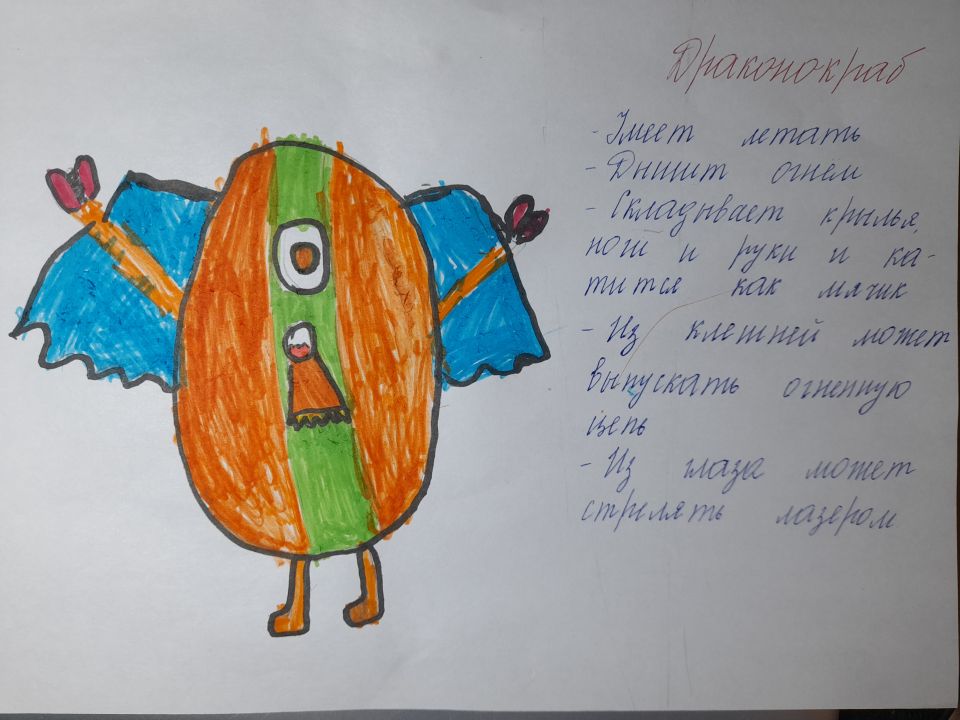 Драконокраб
- Умеет летать
- Дышит огнём
- Складывает крылья,
ноги и руки и ка-
тится как мячик
- Из клешней может
выпускать огненную
цепь
- Из глаза может
стрелять лазером